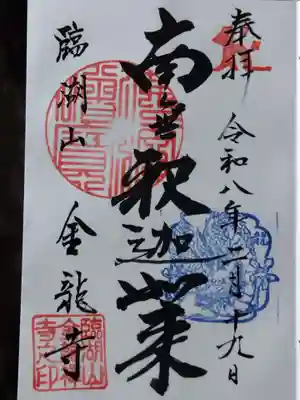 奉拝 令和八年二月十九日
南無釈迦如来
臨湖山 金龍寺
臨湖山
金龍禅
寺之印